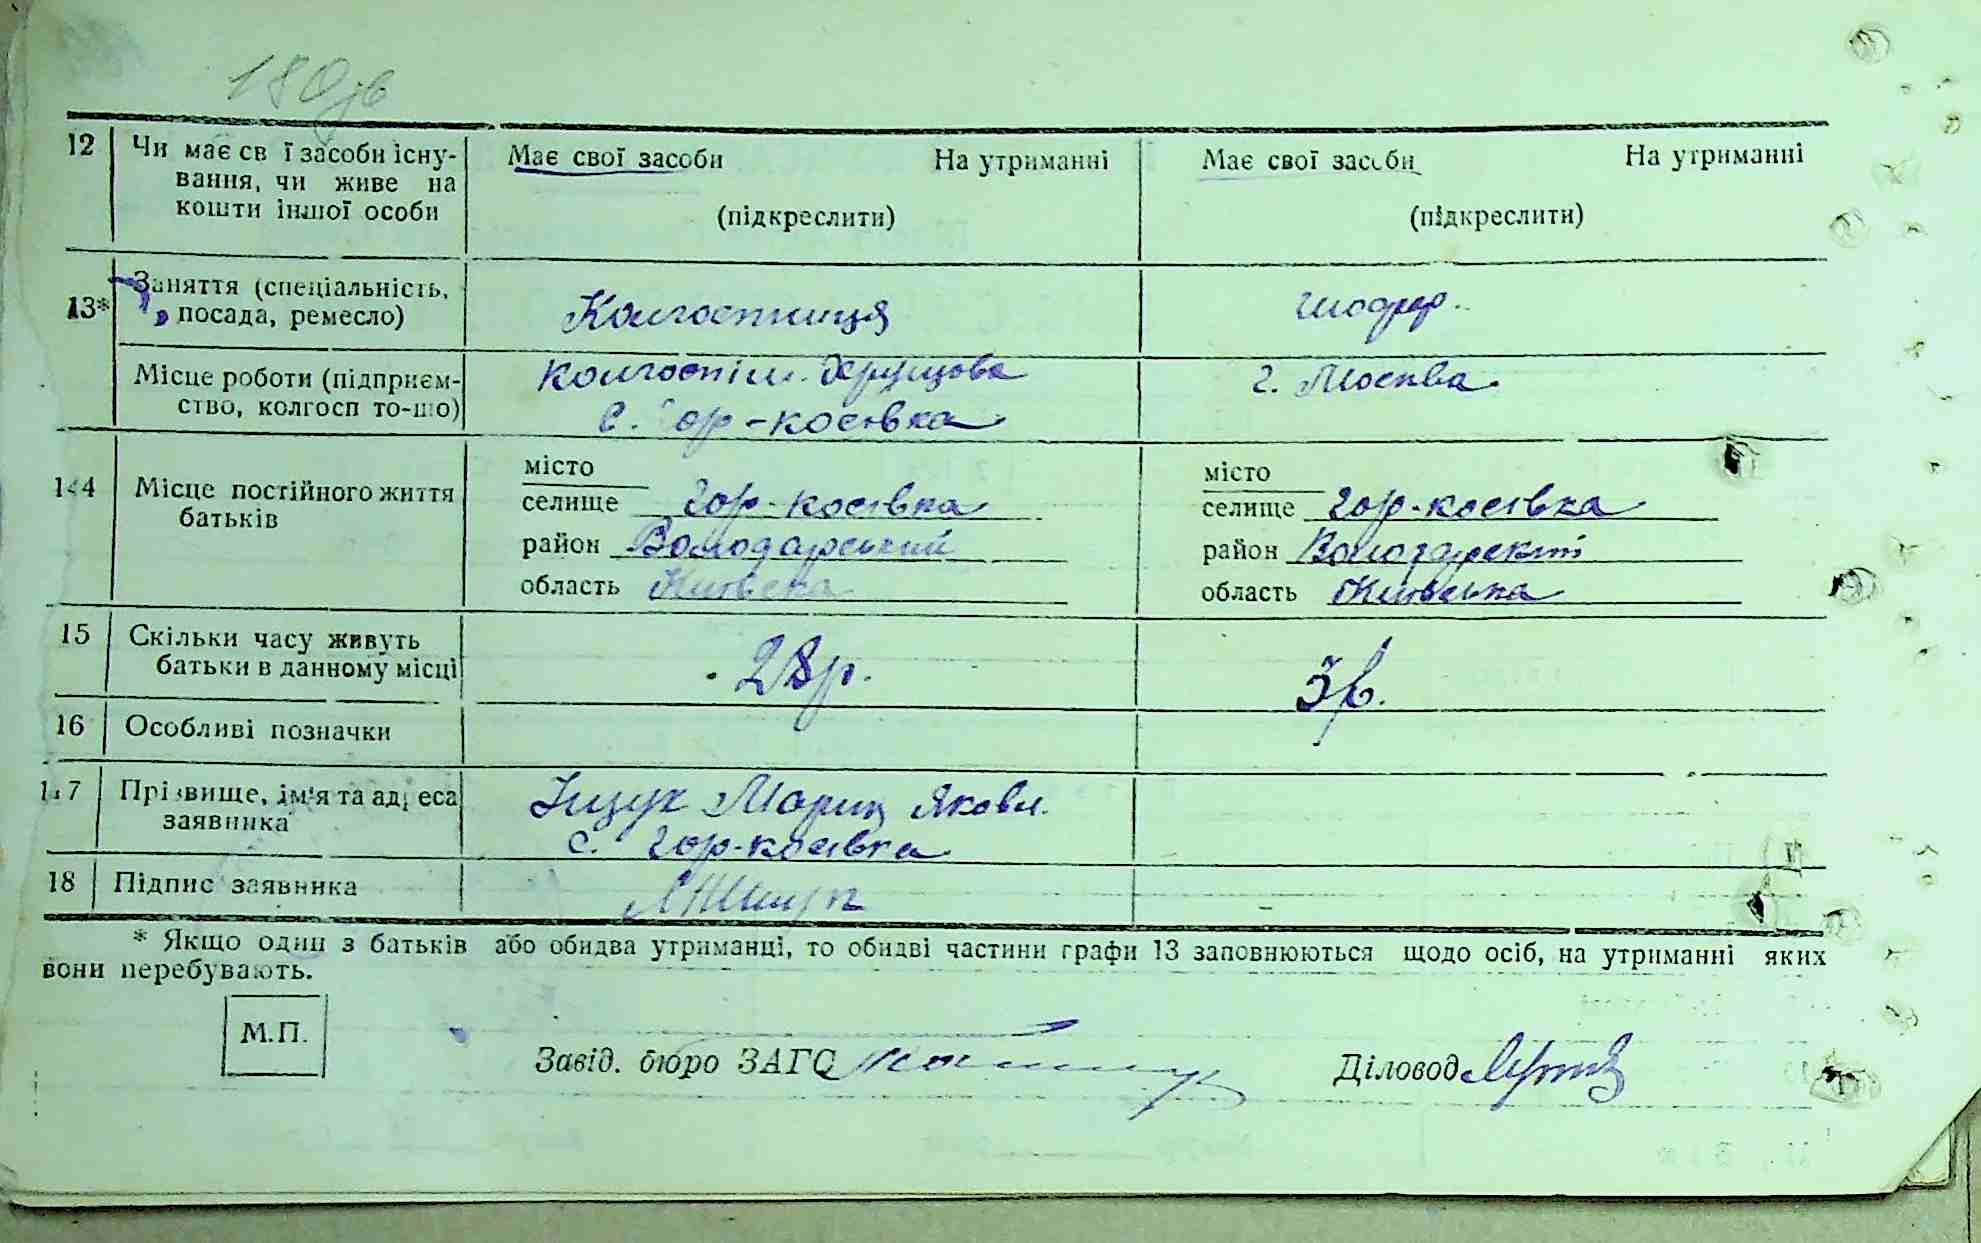 180зв
12 Чи має св ї засоби існу- Має свої засоби На утриманні Має свої засоби На утриманні
вання, чи живе на
кошти іншої особи (підкреслити) (підкреслити)
13* Заняття (спеціальність, Колгоспниця шофер.
посада, ремесло)
Місце роботи (підприєм- Колгосп ім. Хрущова г. Москва.
ство, колгосп то-що) с. Гор-косівка
14 Місце постійного життя місто місто
батьків селище Гор-косівка селище Гор-косівка
район Володарський район Володарский
область Київска область Київська
15 Скільки часу живуть 28р. 3р.
батьки в данному місці
16 Особливі позначки
17 Прізвище, ім'я та адреса Іщук Мария Яковл.
заявника с. Гор-косівка
18 Підпис заявника МІщук
* Якщо один з батьків або обидва утриманці, то обидві частини графи 13 заповнюються щодо осіб, на утриманні яких
вони перебувають.
М.П.
Завід. бюро ЗАГС Діловод